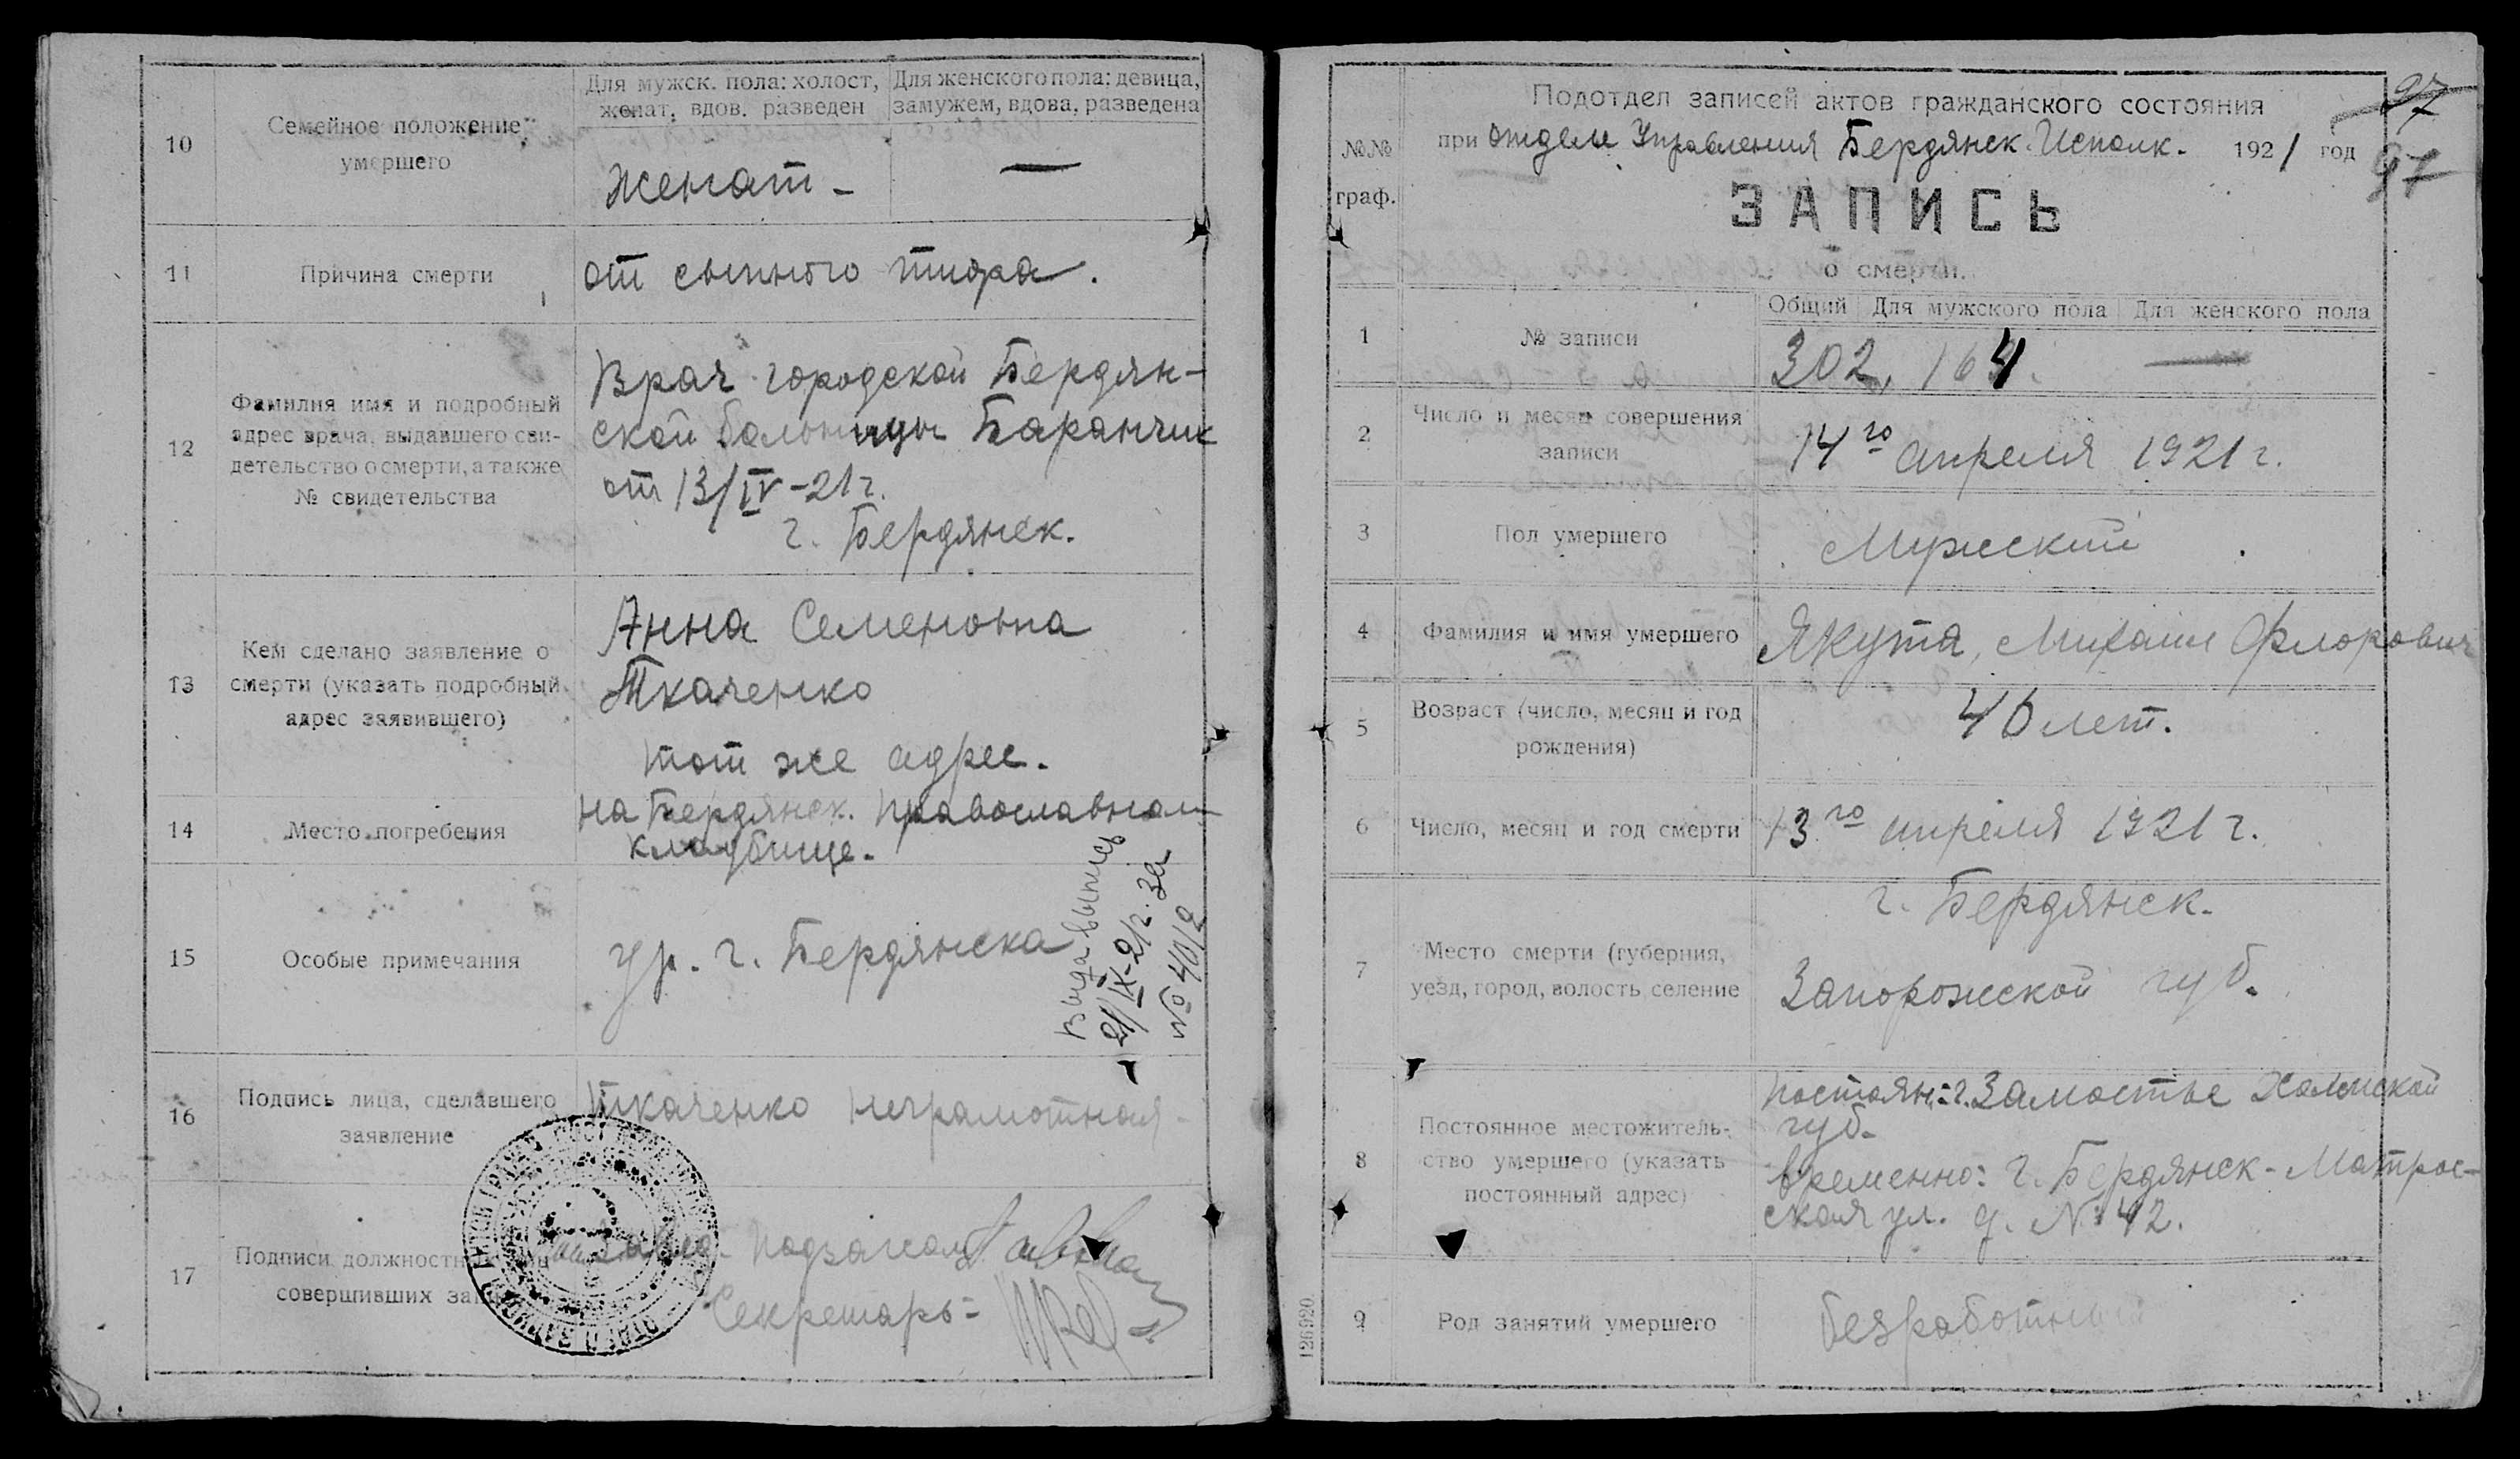 10
Семейное положение
умершего
Для мужск. пола: холост,
женат, вдов. разведен
Для женского пола: девица,
замужем, вдова, разведена
Женат -
—
11
Причина смерти
от сыпного тифа.
12
Фамилия имя и подробный
адрес врача, выдавшего сви-
детельство о смерти, а также
№ свидетельства
Врач городской Бердян-
ской больницы Баранчик
от 13/IV-21 г.
г. Бердянск.
13
Кем сделано заявление о
смерти (указать подробный
адрес заявившего)
Анна Семеновна
Ткаченко
тот же адрес.
14
Место погребения
на Бердянск. православном
кладбище.
15
Особые примечания
ур. г. Бердянска
Выда выпись
21/IX-21г. за
№ 4012
16
Подпись лица, сделавшего
заявление
Ткаченко неграмотная
17
Подписи должностн
совершивших за
Завед. Подзагсом
Секретарь-
№№
граф.
Подотдел записей актов гражданского состояния
при Отделе Управления Бердянск. Исполк. 1921 год
97
97
ЗАПИСЬ
о смерти.
1
№ записи
Общий
Для мужского пола
Для женского пола
302, 164. —
2
Число и месяц совершения
записи
14го апреля 1921 г.
3
Пол умершего
Мужской
4
Фамилия и имя умершего
Якута, Михаил Флорович
5
Возраст (число, месяц и год
рождения)
46 лет.
6
Число, месяц и год смерти
13го апреля 1921 г.
7
Место смерти (губерния,
уезд, город, волость, селение
г. Бердянск.
Запорожской губ.
8
Постоянное местожитель-
ство умершего (указать
постоянный адрес)
постоян:-г. Замостье Холмской
губ.
временно: г. Бердянск - Матрос-
ская ул. д. № 42.
9
Род занятий умершего
безработный
126920